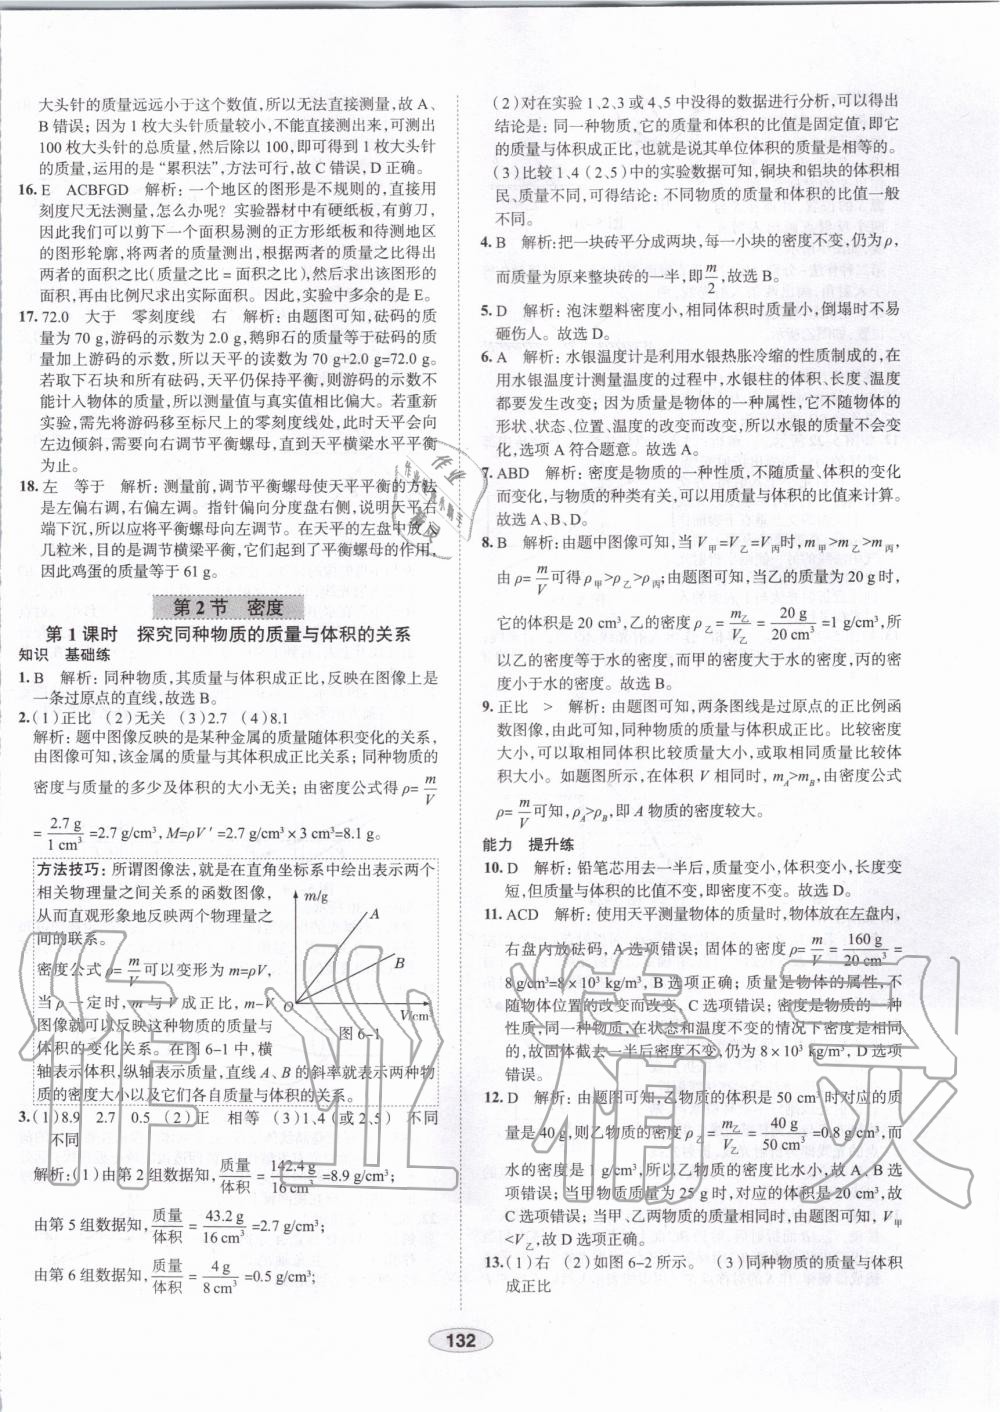 大头针的质量远远小于这个数值,所以无法直接测量,故 A、
B 错误;因为 1 枚大头针质量较小,不能直接测出来,可测出
100 枚大头针的总质量,然后除以 100,即可得到 1 枚大头针
的质量,运用的是“累积法”,方法可行,故 C 错误,D 正确。
16. E ACBFGD 解析:一个地区的图形是不规则的,直接用
刻度尺无法测量,怎么办呢?实验器材中有硬纸板,有剪刀,
因此我们可以剪下一个面积易测的正方形纸板和待测地区
的图形轮廓,将两者的质量测出,根据两者的质量之比得出
两者的面积之比(质量之比 = 面积之比),然后求出该图形的
面积,再由比例尺求出实际面积。因此,实验中多余的是 E。
17. 72.0 大于 零刻度线 右 解析:由题图可知,砝码的质
量为 70 g,游码的示数为 2.0 g,鹅卵石的质量等于砝码的质
量加上游码的示数,所以天平的读数为 70 g+2.0 g=72.0 g。
若取下石块和所有砝码,天平仍保持平衡,则游码的示数不
能计入物体的质量,所以测量值与真实值相比偏大。若重新
实验,需先将游码移至标尺上的零刻度线处,此时天平会向
左边倾斜,需要向右调节平衡螺母,直到天平横梁水平平衡
为止。
18. 左 等于 解析:测量前,调节平衡螺母使天平平衡的方法
是左偏右调,右偏左调。指针偏向分度盘右侧,说明天平右
端下沉,所以应将平衡螺母向左调节。在天平的左盘中放入
几粒米,目的是调节横梁平衡,它们起到了平衡螺母的作用,
因此鸡蛋的质量等于 61 g。
第 2 节 密度
第 1 课时 探究同种物质的质量与体积的关系
知识 基础练
1. B 解析:同种物质,其质量与体积成正比,反映在图像上是
一条过原点的直线,故选 B。
2. (1)正比 (2)无关 (3)2.7 (4)8.1
解析:题中图像反映的是某种金属的质量随体积变化的关系,
由图像可知,该金属的质量与其体积成正比关系;同种物质的
密度与质量的多少及体积的大小无关;由密度公式得 ρ=m/V
=2.7 g/1 cm³=2.7 g/cm³,M=ρV′=2.7 g/cm³×3 cm³=8.1 g。
方法技巧:所谓图像法,就是在直角坐标系中绘出表示两个
相关物理量之间关系的函数图像,
从而直观形象地反映两个物理量之
间的联系。
密度公式 ρ=m/V可以变形为 m=ρV,
当 ρ 一定时,m 与 V 成正比,m-V
图像就可以反映这种物质的质量与
体积的变化关系。在图 6-1 中,横
轴表示体积,纵轴表示质量,直线 A、B 的斜率就表示两种物
质的密度大小以及它们各自质量与体积的关系。
m/g
A
B
O
V/cm³
图 6-1
3. (1)8.9 2.7 0.5 (2)正 相等 (3)1、4(或 2、5) 不同
不同
解析:(1)由第 2 组数据知,质量/体积=142.4 g/16 cm³=8.9 g/cm³;
由第 5 组数据知,质量/体积=43.2 g/16 cm³=2.7 g/cm³;
由第 6 组数据知,质量/体积=4 g/8 cm³=0.5 g/cm³;
(2)对在实验 1、2、3 或 4、5 中没得的数据进行分析,可以得出
结论是:同一种物质,它的质量和体积的比值是固定值,即它
的质量与体积成正比,也就是说其单位体积的质量是相等的。
(3)比较 1、4(2、5)中的实验数据可知,铜块和铝块的体积相
同,质量不同,可得结论:不同物质的质量和体积的比值一般
不同。
4. B 解析:把一块砖平分成两块,每一小块的密度不变,仍为 ρ,
而质量为原来整块砖的一半,即m/2,故选 B。
5. D 解析:泡沫塑料密度小,相同体积时质量小,倒塌时不易
砸伤人。故选 D。
6. A 解析:水银温度计是利用水银热胀冷缩的性质制成的,在
用水银温度计测量温度的过程中,水银柱的体积、长度、温度
都要发生改变;因为质量是物体的一种属性,它不随物体的
形状、状态、位置、温度的改变而改变,所以水银的质量不会变
化,选项 A 符合题意。故选 A。
7. ABD 解析:密度是物质的一种性质,不随质量、体积的变化
而变化,与物质的种类有关,可以用质量与体积的比值来计算。
故选 A、B、D。
8. B 解析:由题中图像可知,当 V甲=V乙=V丙时,m甲>m乙>m丙,
由 ρ=m/V可得 ρ甲>ρ乙>ρ丙;由题图可知,当乙的质量为 20 g 时,
它的体积是 20 cm³,乙的密度 ρ乙=m乙/V乙=20 g/20 cm³=1 g/cm³,所
以乙的密度等于水的密度,而甲的密度大于水的密度,丙的密
度小于水的密度。故选 B。
9. 正比 > 解析:由题图可知,两条图线是过原点的正比例函
数图像,由此可知,同种物质的质量与体积成正比。比较密度
大小,可以取相同体积比较质量大小,或取相同质量比较体
积大小。如题图所示,在体积 V 相同时,mA>mB,由密度公式
ρ=m/V可知,ρA>ρB,即 A 物质的密度较大。
能力 提升练
10. D 解析:铅笔芯用去一半后,质量变小,体积变小,长度变
短,但质量与体积的比值不变,即密度不变。故选 D。
11. ACD 解析:使用天平测量物体的质量时,物体放在左盘内,
右盘内放砝码,A 选项错误;固体的密度 ρ=m/V=160 g/20 cm³=
8 g/cm³=8×10³ kg/m³,B 选项正确;质量是物体的属性,不
随物体位置的改变而改变,C 选项错误;密度是物质的一种
性质,同一种物质,在状态和温度不变的情况下密度是相同
的,故固体截去一半后密度不变,仍为 8×10³ kg/m³,D 选项
错误。
12. D 解析:由题图可知,乙物质的体积是 50 cm³时对应的质
量是 40 g,则乙物质的密度 ρ乙=m乙/V乙=40 g/50 cm³=0.8 g/cm³,而
水的密度是 1 g/cm³,所以乙物质的密度比水小,故 A、B 选
项错误;当甲物质质量为 25 g 时,对应的体积是 20 cm³,故
C 选项错误;当甲、乙两物质的质量相同时,由题图可知,V甲
<V乙,故 D 选项正确。
13. (1)右 (2)如图 6-2 所示。 (3)同种物质的质量与体积
成正比
132